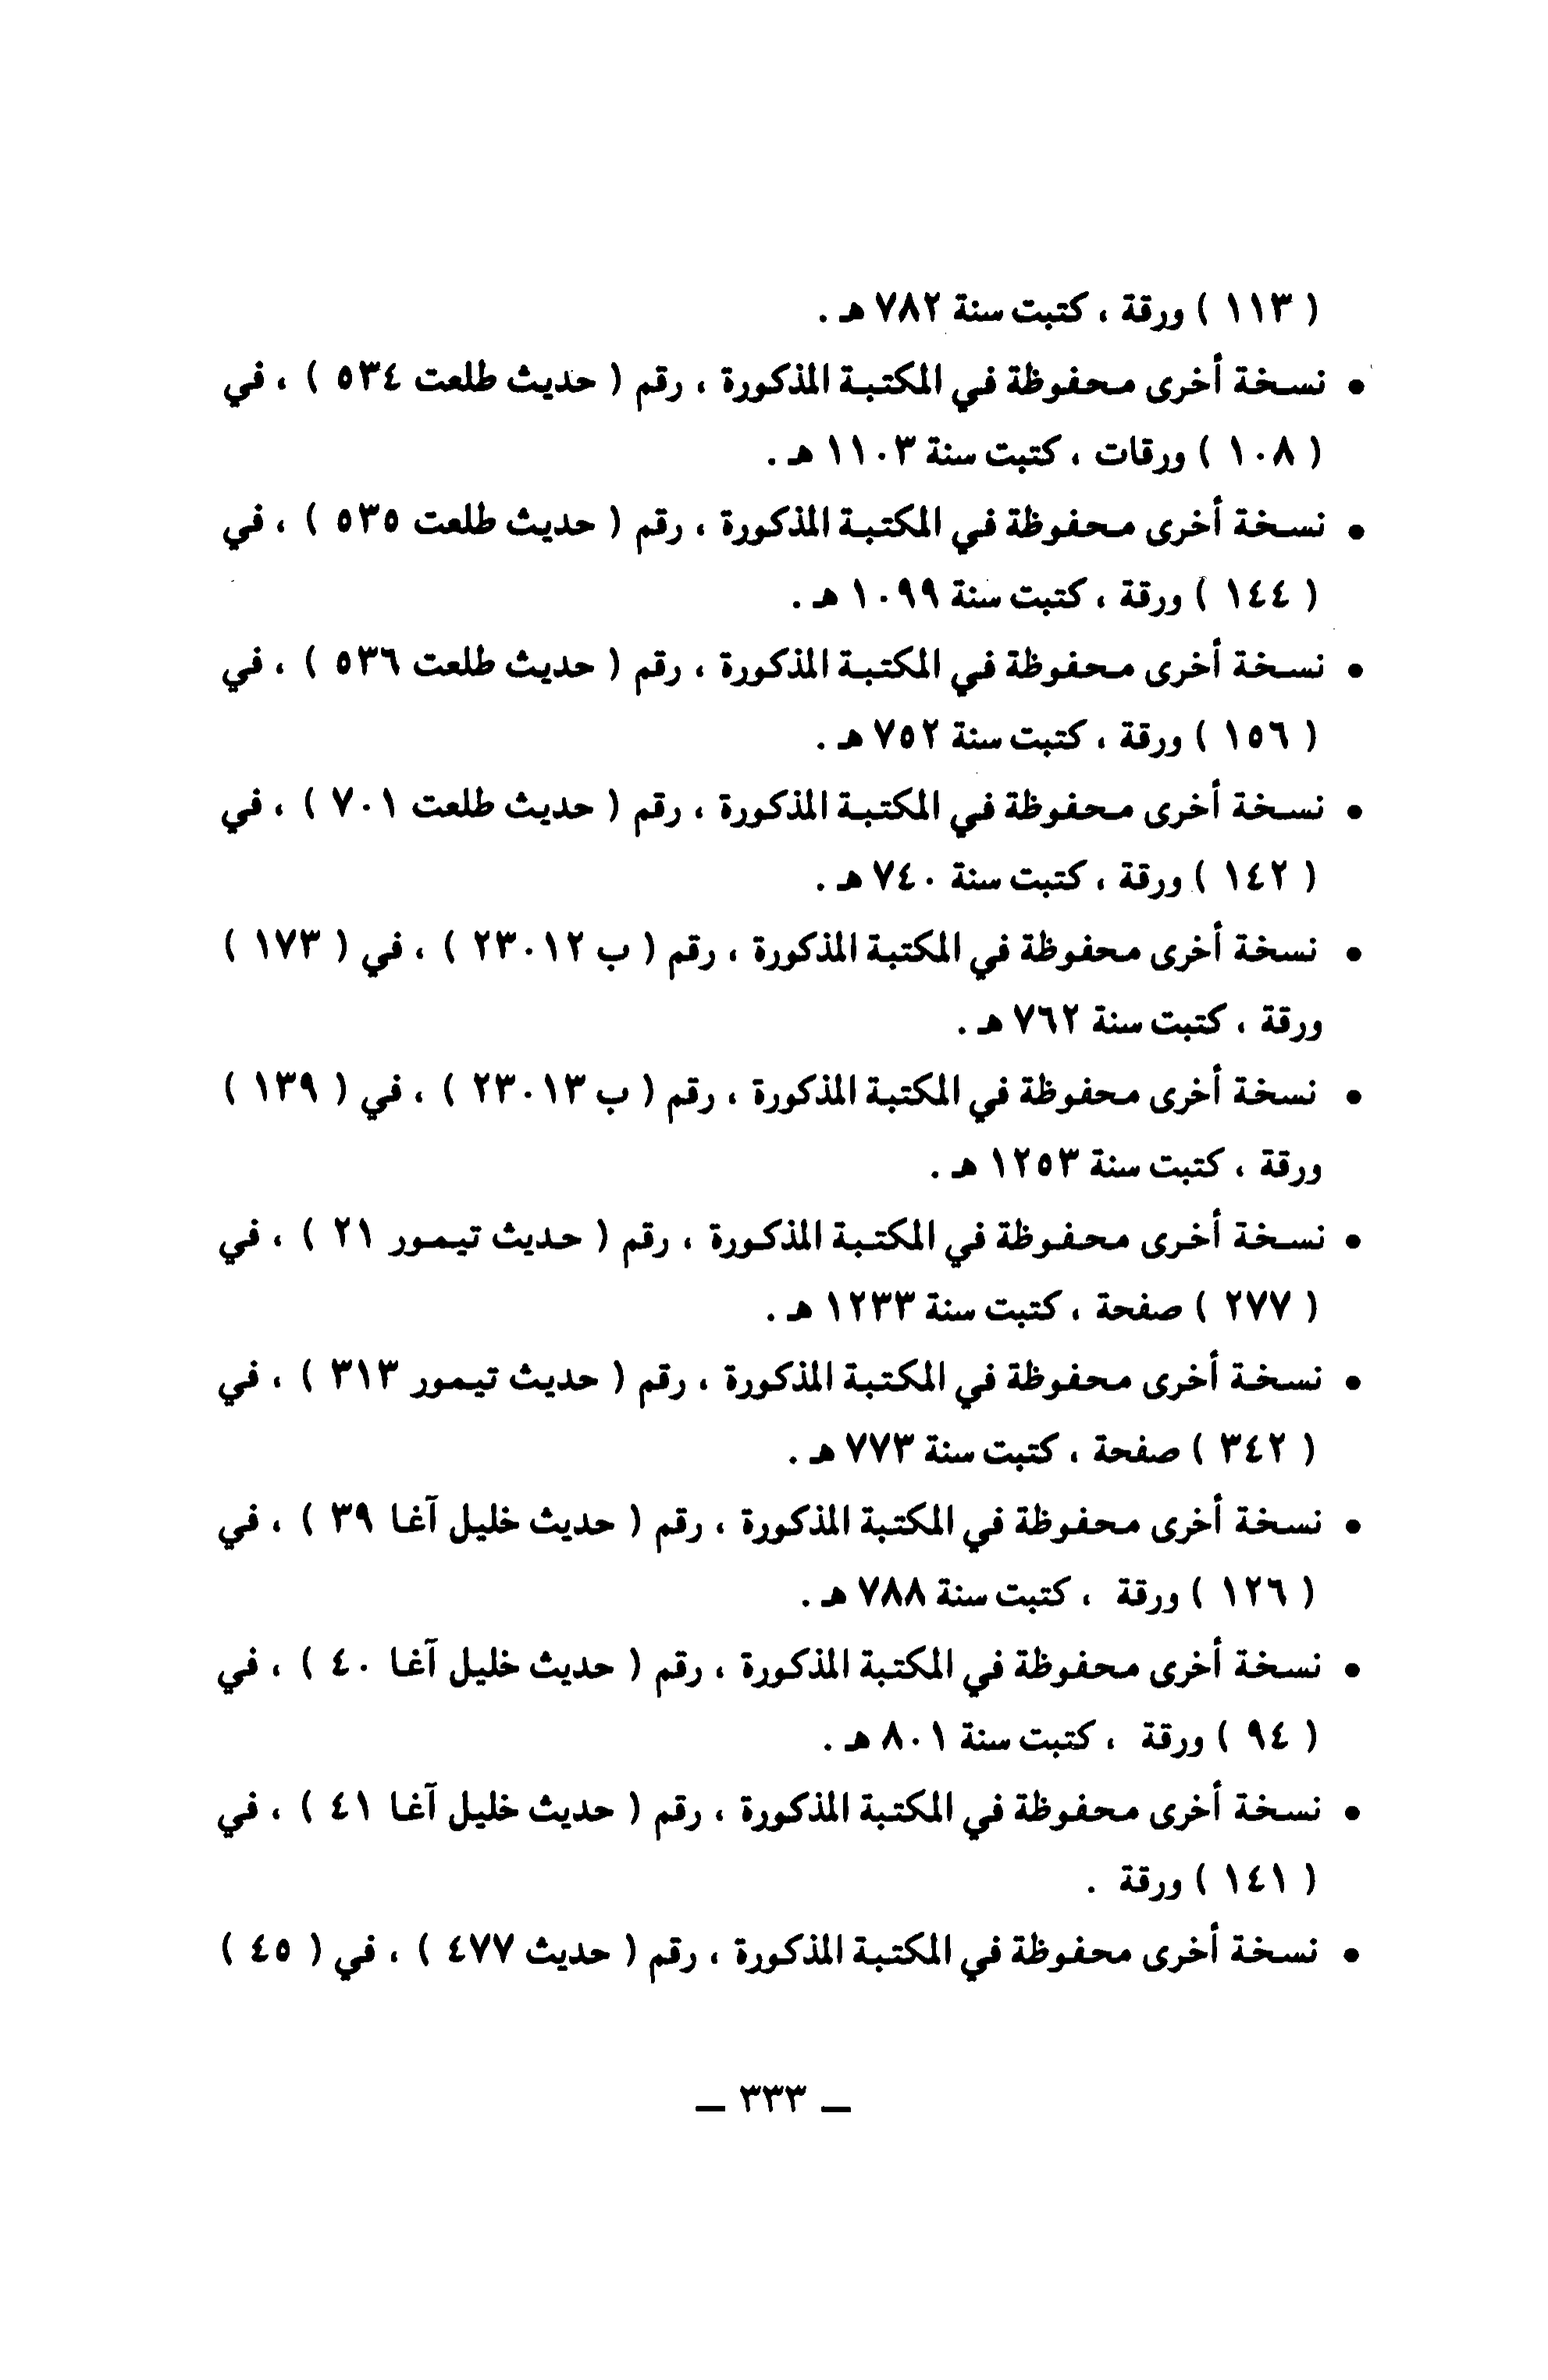 ( ١١٣ ) ورقة ، كتبت سنة ٧٨٢ هـ .
• نسخة أخرى محفوظة في المكتبة المذكورة ، رقم ( حديث طلعت ٥٣٤ ) ، في
( ١٠٨ ) ورقات ، كتبت سنة ١١٠٣ هـ .
• نسخة أخرى محفوظة في المكتبة المذكورة ، رقم ( حديث طلعت ٥٣٥ ) ، في
( ١٤٤ ) ورقة ، كتبت سنة ١٠٩٩ هـ .
• نسخة أخرى محفوظة في المكتبة المذكورة ، رقم ( حديث طلعت ٥٣٦ ) ، في
( ١٥٦ ) ورقة ، كتبت سنة ٧٥٢ هـ .
• نسخة أخرى محفوظة في المكتبة المذكورة ، رقم ( حديث طلعت ٧٠١ ) ، في
( ١٤٢ ) ورقة ، كتبت سنة ٧٤٠ هـ .
• نسخة أخرى محفوظة في المكتبة المذكورة ، رقم ( ب ٢٣٠١٢ ) ، في ( ١٧٣ )
ورقة ، كتبت سنة ٧٦٢ هـ .
• نسخة أخرى محفوظة في المكتبة المذكورة ، رقم ( ب ٢٣٠١٣ ) ، في ( ١٣٩ )
ورقة ، كتبت سنة ١٢٥٣ هـ .
• نسخة أخرى محفوظة في المكتبة المذكورة ، رقم ( حديث تيمور ٢١ ) ، في
( ٢٧٧ ) صفحة ، كتبت سنة ١٢٣٣ هـ .
• نسخة أخرى محفوظة في المكتبة المذكورة ، رقم ( حديث تيمور ٣١٣ ) ، في
( ٣٤٢ ) صفحة ، كتبت سنة ٧٧٣ هـ .
• نسخة أخرى محفوظة في المكتبة المذكورة ، رقم ( حديث خليل آغا ٣٩ ) ، في
( ١٢٦ ) ورقة ، كتبت سنة ٧٨٨ هـ .
• نسخة أخرى محفوظة في المكتبة المذكورة ، رقم ( حديث خليل آغا ٤٠ ) ، في
( ٩٤ ) ورقة ، كتبت سنة ٨٠١ هـ .
• نسخة أخرى محفوظة في المكتبة المذكورة ، رقم ( حديث خليل آغا ٤١ ) ، في
( ١٤١ ) ورقة .
• نسخة أخرى محفوظة في المكتبة المذكورة ، رقم ( حديث ٤٧٧ ) ، في ( ٤٥ )
ـ ٣٣٣ ـ